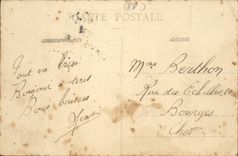 (88)
CARTE POSTALE
CORRESPONDANCE
ADRESSE
Tout va bien
Bonjour à tous
Bons baisers
Mme Berthon
Rue des Échelles
Bourges
Cher